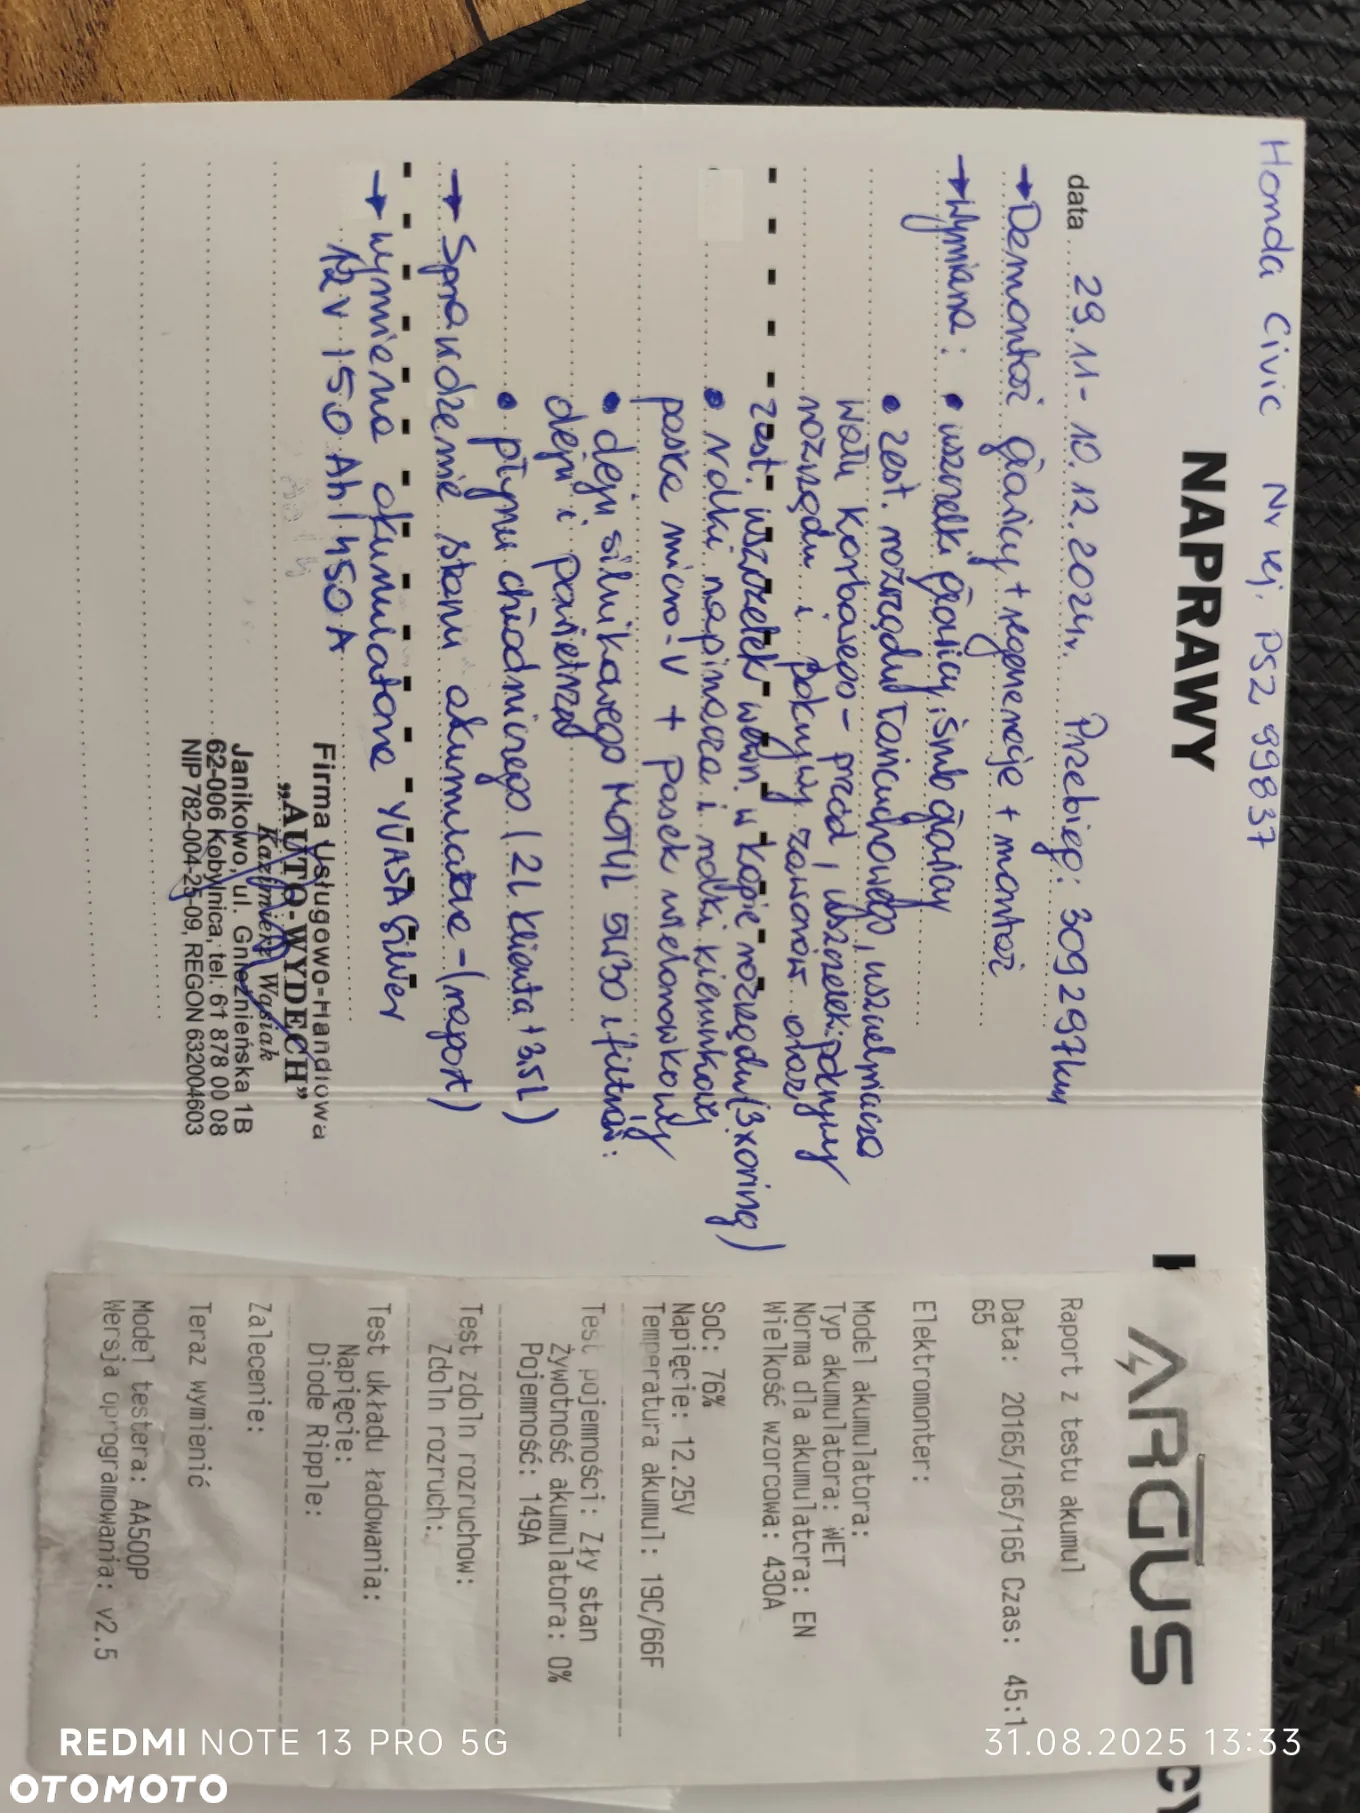 Honda Civic Nr rej. PSZ 99837
NAPRAWY
data 29.11-10.12.2024r. Przebieg: 309297km
→ Demontaż głowicy + regeneracja + montaż
→ Wymiana: • uszczelki głowicy, śrub głowicy
• zest. rozrządu łańcuchowego, uszczelniacza
wału korbowego - przód, uszczelek: pokrywy
rozrządu i pokrywy zaworów oraz
zest. uszczelek wewn. w kopie rozrządu (3xoring)
• rolki napinacza i rolki kierunkowej
paska micro-V + pasek wielorowkowy
• oleju silnikowego MOTUL 5W30 i filtrów:
oleju i powietrza
• płynu chłodniczego (2L klienta + 3,5L)
→ Sprawdzenie stanu akumulatora - (raport)
→ wymiana akumulatora YUASA Silver
12V 50Ah 450A
Firma Usługowo-Handlowa
„AUTO-WYDECH”
Kazimierz Wąsiak
Janikowo, ul. Gnieźnieńska 1B
62-006 Kobylnica, tel. 61 878 00 08
NIP 782-004-25-09, REGON 632004603
ARGUS
Raport z testu akumul
Data: 20165/165/165 Czas: 45:1
65
Elektromonter:
Model akumulatora:
Typ akumulatora: WET
Norma dla akumulatora: EN
Wielkość wzorcowa: 430A
SoC: 76%
Napięcie: 12.25V
Temperatura akumul: 19C/66F
Test pojemności: Zły stan
Żywotność akumulatora: 0%
Pojemność: 149A
Test zdoln rozruchow:
Zdoln rozruch:
Test układu ładowania:
Napięcie:
Diode Ripple:
Zalecenie:
Teraz wymienić
Model testera: AA500P
Wersja oprogramowania: v2.5
CY
REDMI NOTE 13 PRO 5G
31.08.2025 13:33
OTOMOTO